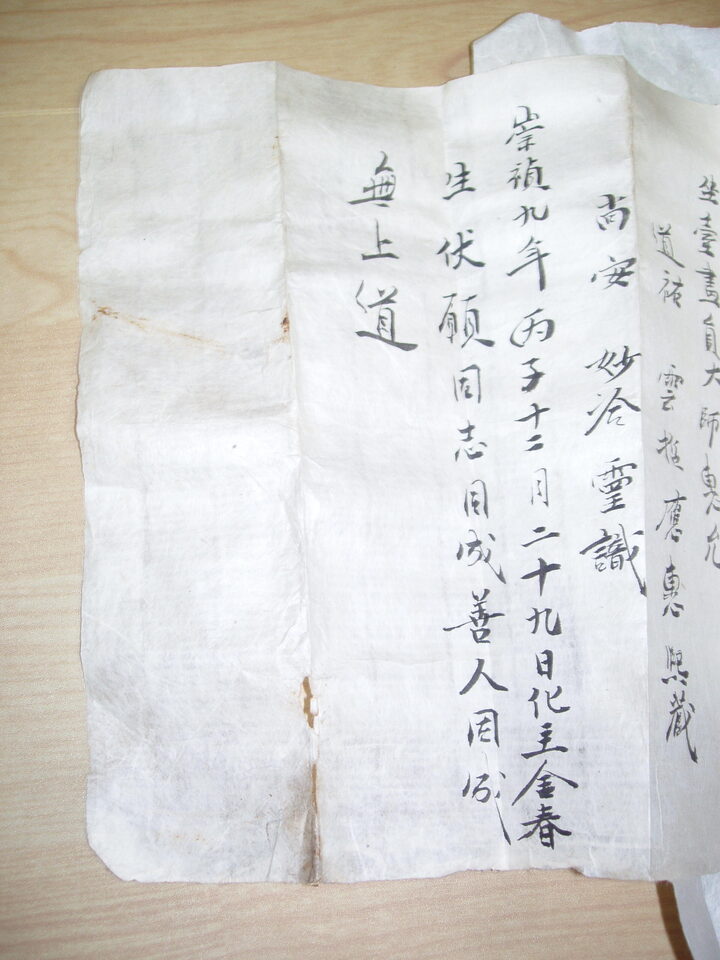 坐臺畫員大師惠允
道祐 雲推 應惠 熙藏
尚安 妙冾 靈識
崇禎九年丙子十二月二十九日化主金春
生伏願同志同成善人同成
無上道